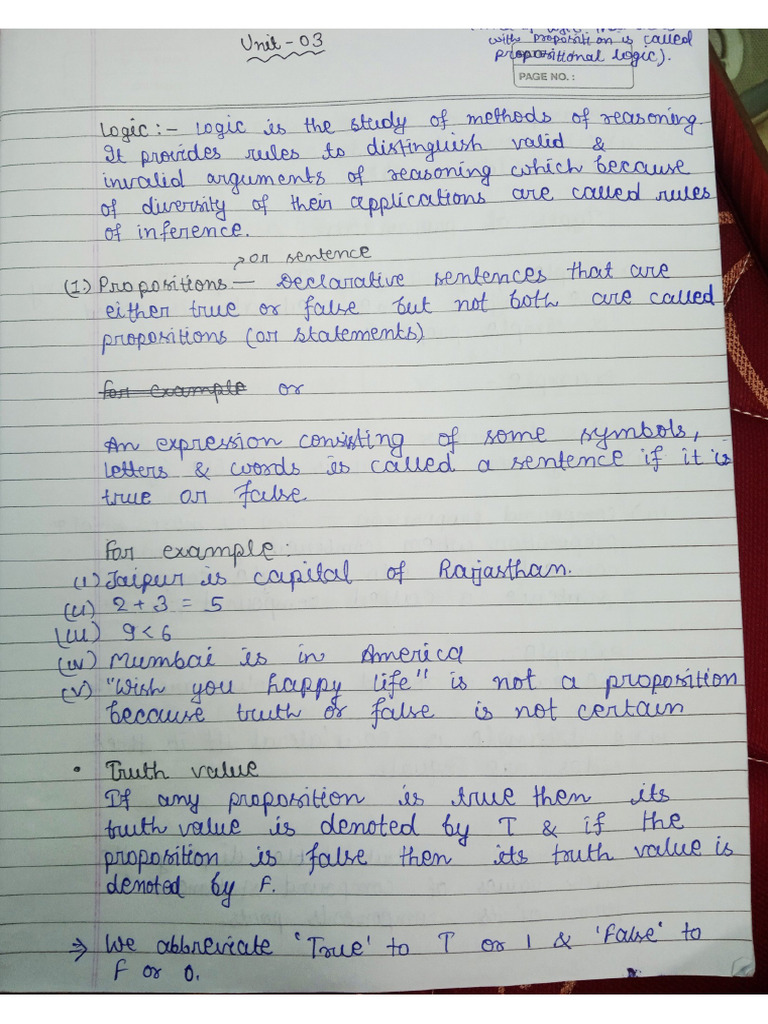 Unit - 03
with proposition is called
propositional logic).
PAGE NO. :
Logic :- Logic is the study of methods of reasoning.
It provides rules to distinguish valid &
invalid arguments of reasoning which because
of diversity of their applications are called rules
of inference.
or sentence
(1.) Propositions — Declarative sentences that are
either true or false but not both are called
propositions (or statements)
for example or
An expression consisting of some symbols,
letters & words is called a sentence if it is
true or false
For example :
(i) Jaipur is capital of Rajasthan.
(ii) 2 + 3 = 5
(iii) 9 < 6
(iv) Mumbai is in America
(v) "Wish you happy life" is not a proposition
because truth or false is not certain
• Truth value
If any proposition is true then its
truth value is denoted by T & if the
proposition is false then its truth value is
denoted by F.
⇒ We abbreviate 'True' to T or 1 & 'False' to
F or 0.